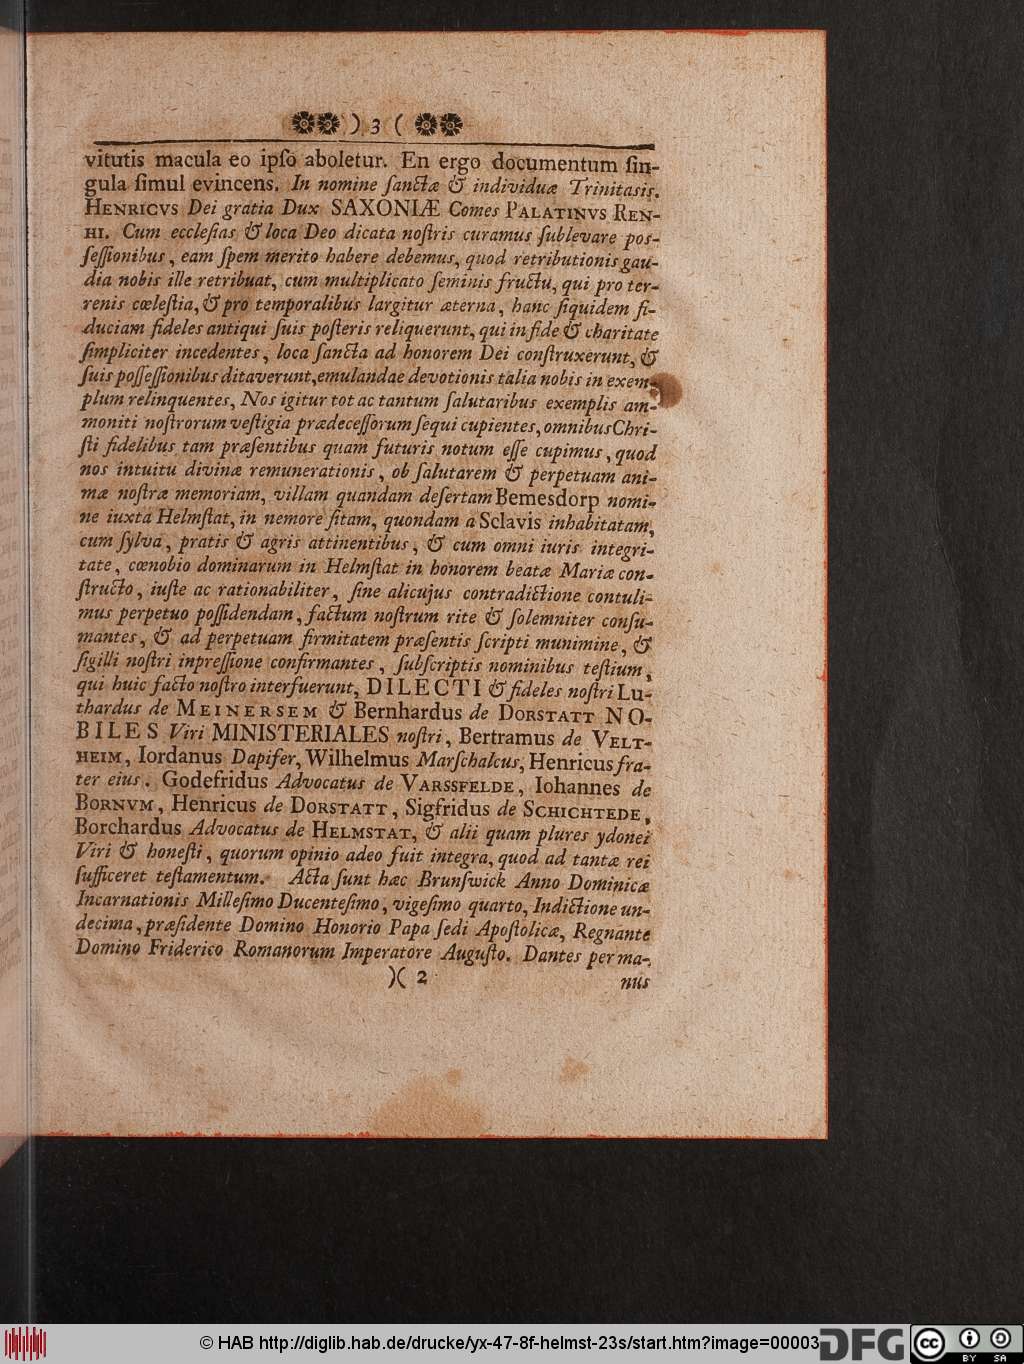 ) 3 (
vitutis macula eo ipſo aboletur. En ergo documentum ſin-
gula ſimul evincens. In nomine ſanctæ & individuæ Trinitasis.
HENRICVS Dei gratia Dux SAXONIÆ Comes PALATINVS REN-
HI. Cum eccleſias & loca Deo dicata noſtris curamus ſublevare poſ-
ſeſſionibus, eam ſpem merito habere debemus, quod retributionis gau-
dia nobis ille retribuat, cum multiplicato ſeminis fructu, qui pro ter-
renis cœleſtia, & pro temporalibus largitur æterna, hanc ſiquidem fi-
duciam fideles antiqui ſuis poſteris reliquerunt, qui in fide & charitate
ſimpliciter incedentes, loca ſancta ad honorem Dei conſtruxerunt, &
ſuis poſſeſſionibus ditaverunt, emulandae devotionis talia nobis in exem-
plum relinquentes, Nos igitur tot ac tantum ſalutaribus exemplis am-
moniti noſtrorum veſtigia prædeceſſorum ſequi cupientes, omnibus Chri-
ſti fidelibus tam præſentibus quam futuris notum eſſe cupimus, quod
nos intuitu divinæ remunerationis, ob ſalutarem & perpetuam ani-
mæ noſtræ memoriam, villam quandam deſertam Bemesdorp nomi-
ne iuxta Helmſtat, in nemore ſitam, quondam a Sclavis inhabitatam,
cum ſylva, pratis & agris attinentibus, & cum omni iuris integri-
tate, cœnobio dominarum in Helmſtat in honorem beatæ Mariæ con-
ſtructo, iuſte ac rationabiliter, ſine alicujus contradictione contuli-
mus perpetuo poſſidendam, factum noſtrum rite & ſolemniter conſu-
mantes, & ad perpetuam firmitatem præſentis ſcripti munimine, &
ſigilli noſtri inpreſſione confirmantes, ſubſcriptis nominibus teſtium,
qui huic facto noſtro interfuerunt, DILECTI & fideles noſtri Lu-
thardus de MEINERSEM & Bernhardus de DORSTATT NO-
BILES Viri MINISTERIALES noſtri, Bertramus de VELT-
HEIM, Iordanus Dapifer, Wilhelmus Marſchalcus, Henricus fra-
ter eius. Godefridus Advocatus de VARSSFELDE, Iohannes de
BORNVM, Henricus de DORSTATT, Sigfridus de SCHICHTEDE,
Borchardus Advocatus de HELMSTAT, & alii quam plures ydonei
Viri & honeſti, quorum opinio adeo fuit integra, quod ad tantæ rei
ſufficeret teſtamentum. Acta ſunt hæc Brunſwick Anno Dominicæ
Incarnationis Milleſimo Ducenteſimo, vigeſimo quarto, Indictione un-
decima, præſidente Domino Honorio Papa ſedi Apoſtolicæ, Regnante
Domino Friderico Romanorum Imperatore Auguſto. Dantes per ma-
)( 2
nus
© HAB http://diglib.hab.de/drucke/yx-47-8f-helmst-23s/start.htm?image=00003
DFG
cc
BY SA